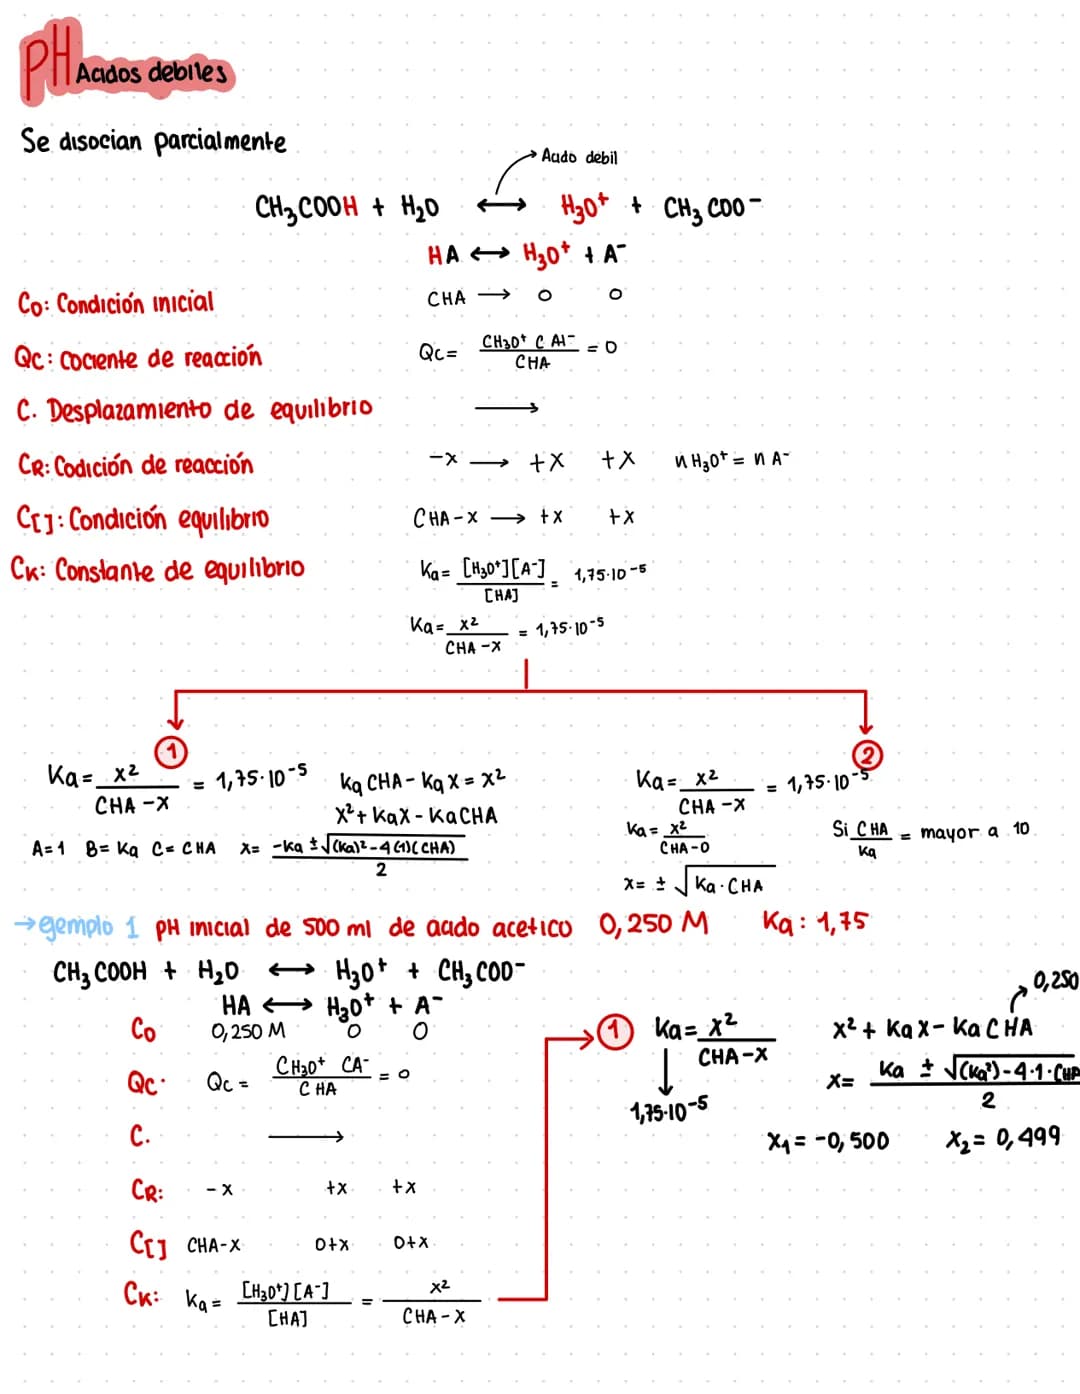 PH Acidos debiles
Se disocian parcialmente
Acido debil
CH₃COOH + H₂O ⟷ H₃O⁺ + CH₃COO⁻
HA ⟷ H₃O⁺ + A⁻
Co: Condición inicial CHA → 0 0
Qc: Cociente de reacción Qc = CH₃O⁺ C A⁻ / CHA = 0
C. Desplazamiento de equilibrio →
CR: Codición de reacción -x → +x +x n H₃O⁺ = n A⁻
C[]: Condición equilibrio CHA-x → +x +x
CK: Constante de equilibrio Ka = [H₃O⁺][A⁻] / [HA] = 1,75·10⁻⁵
Ka = x² / CHA-x = 1,75·10⁻⁵
1
Ka = x² / CHA-x = 1,75·10⁻⁵ Ka CHA - Ka x = x²
x² + Kax - KaCHA
A=1 B=Ka C=CHA x= -Ka ± √(Ka)²-4(1)(CHA) / 2
2
Ka = x² / CHA-x = 1,75·10⁻⁵
Ka = x² / CHA-0 Si CHA / Ka = mayor a 10
x = ± √Ka·CHA
→ejemplo 1 pH inicial de 500 ml de acido acetico 0,250 M Ka: 1,75
CH₃COOH + H₂O ⟷ H₃O⁺ + CH₃COO⁻
HA ⟷ H₃O⁺ + A⁻
Co 0,250 M 0 0
Qc· Qc = CH₃O⁺ CA⁻ / CHA = 0
C. →
CR: -x +x +x
C[] CHA-x 0+x 0+x
CK: Ka = [H₃O⁺][A⁻] / [HA] = x² / CHA-x
1 Ka = x² / CHA-x
1,75·10⁻⁵
0,250
x² + Kax - KaCHA
x= Ka ± √(Ka²)-4·1·CHA / 2
x₁ = -0,500 x₂ = 0,499